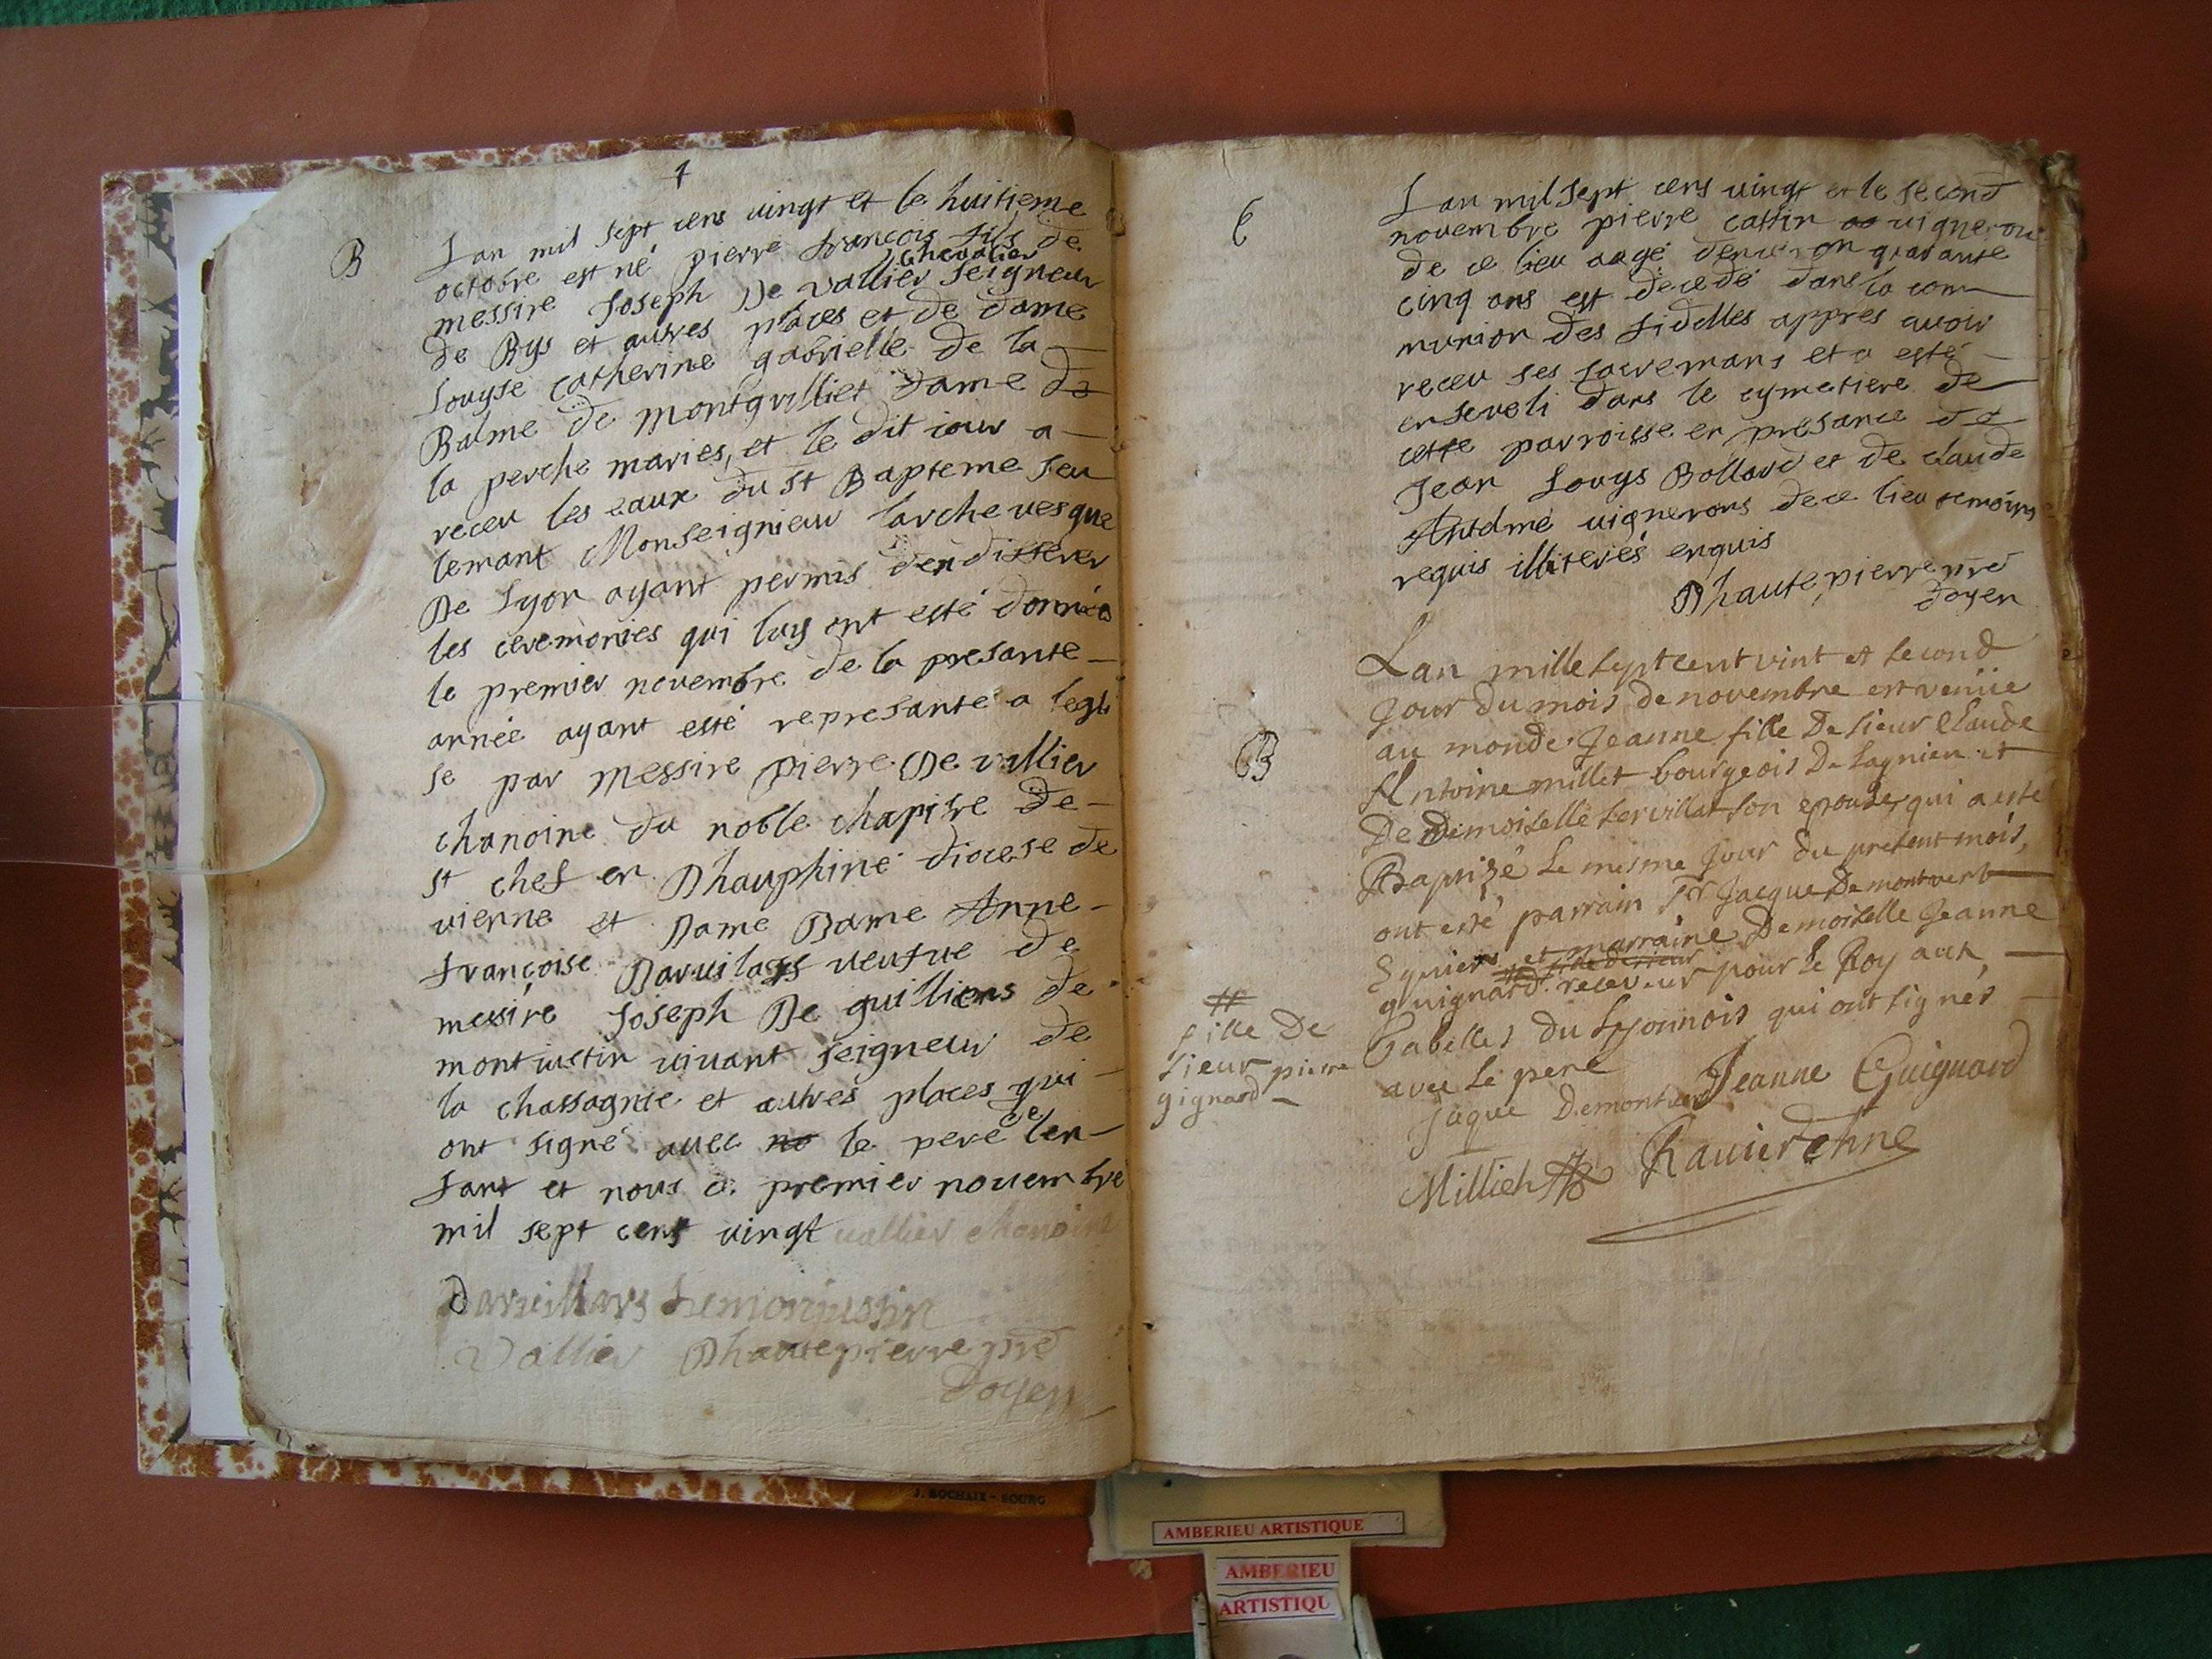 1
B
Lan mil sept cens vingt et le huitieme
octobre est né pierre francois fils de
chevalier
messire Joseph De vallier seigneur
de Bys et autres places et de dame
Louyse catherine gabrielle de la
Balme de montquilliet dame de
la perche maries, et le dit iour a
receu les eaux du st Bapteme seu
lemant Monseignieur larchevesque
De Lyon ayant permis den differer
les ceremonies qui luy ont esté données
le premier novembre de la presante
année ayant esté represanté a legli
se par messire pierre De vallier
chanoine du noble chapitre de
st chef en Dhauphiné diocese de
vienne et Dame Dame Anne
françoise Darvilars veufue de
messire Joseph De guilliens de
montiustin vivant seigneur de
la chassagnie et autres places qui
ont signé avec no le pere de len
fant et nous ce premier novembre
mil sept cens vingt vallier chanoine
Darveillars de moniustin
Vallier Dhautepierre pre
doyen
6
Lan mil sept cens vingt et le second
novembre pierre cattin vigneron
de ce lieu aagé denviron quarante
cinq ans est décédé dans la com
munion des fidelles appres avoir
receu ses sacremans et a esté
enseveli dans le cymetiere de
cette parroisse en presance de
Jean Louys Bollard et de claude
Antelme vignerons de ce lieu temoins
requis illiterés enquis
Dhautepierre pre
doyen
B
Lan mille sept cent vint et second
Jour du mois de novembre est venüe
au monde Jeanne fille De sieur Claude
Antoine millet bourgeois De Lagnieu et
De Demoiselle servillat son epouse, qui a esté
Baptizé Le mesme Jour du present mois,
ont esté parrain sr Jacque De montvert
Eyuiers et marraine Demoiselle Jeanne
# fille de sieur
guignard receveur pour le Roy aux
Gabelles du Lyonnois qui ont signés
avec le pere Jeanne Guignard
#
fille De
sieur pierre
gignard
Jaque Demontuert
Millieh Ravier chne
J. ROCHAIX - BOURG
AMBERIEU ARTISTIQUE
AMBERIEU
ARTISTIQU